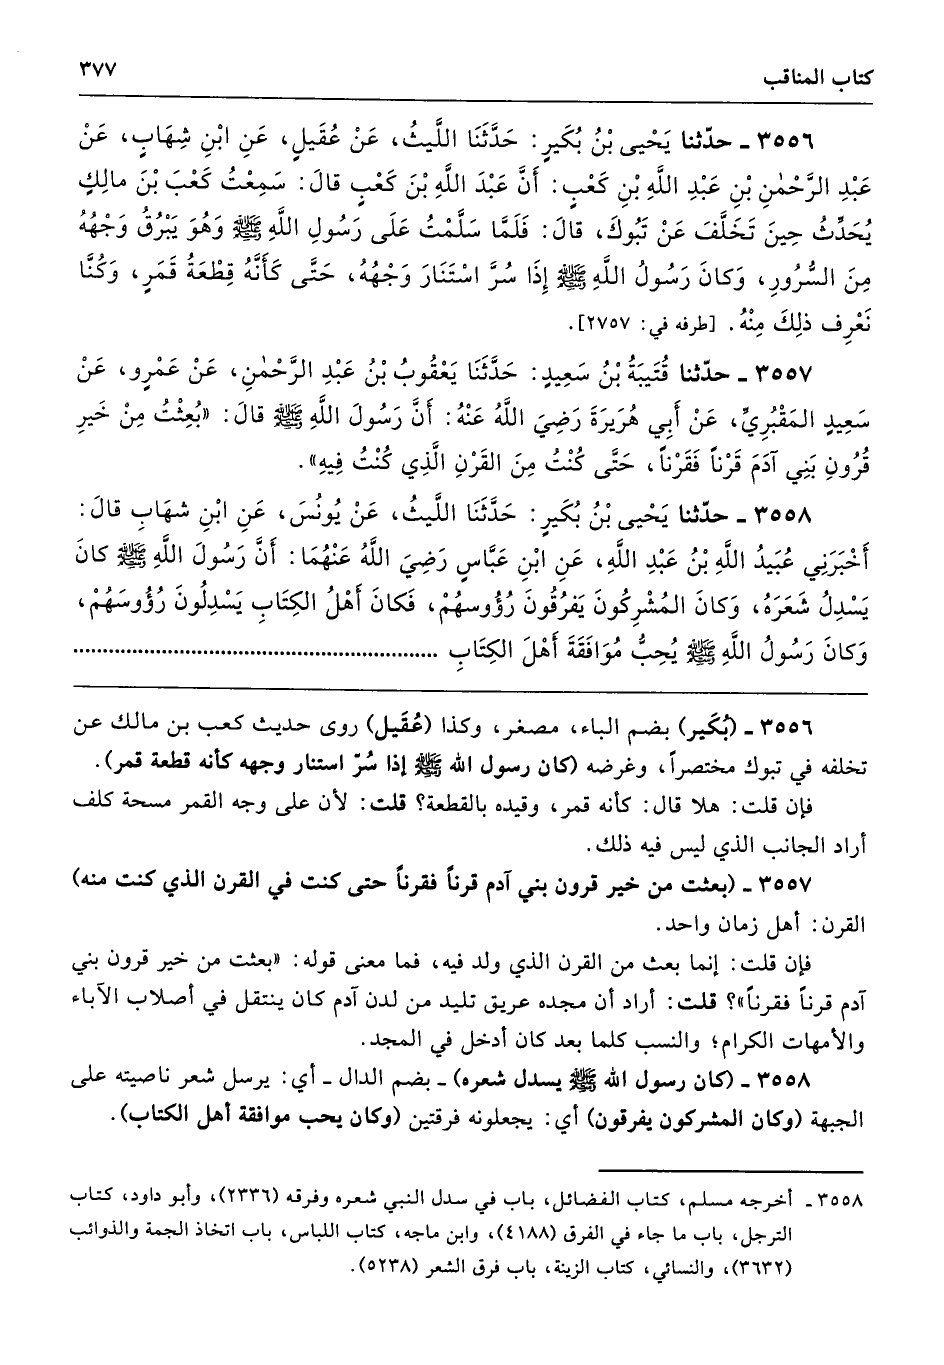 كتاب المناقب ٣٧٧
٣٥٥٦ ـ حدّثنا يَحْيى بْنُ بُكَيرٍ: حَدَّثَنَا اللَّيثُ، عَنْ عُقَيلٍ، عَنِ ابْنِ شِهَابٍ، عَنْ
عَبْدِ الرَّحْمٰنِ بْنِ عَبْدِ اللَّهِ بْنِ كَعْبٍ: أَنَّ عَبْدَ اللَّهِ بْنَ كَعْبٍ قالَ: سَمِعْتُ كَعْبَ بْنَ مالِكٍ
يُحَدِّثُ حِينَ تَخَلَّفَ عَنْ تَبُوكَ، قالَ: فَلَمَّا سَلَّمْتُ عَلَى رَسُولِ اللَّهِ ﷺ وَهُوَ يَبْرُقُ وَجْهُهُ
مِنَ السُّرُورِ، وَكانَ رَسُولُ اللَّهِ ﷺ إِذَا سُرَّ اسْتَنَارَ وَجْهُهُ، حَتَّى كَأَنَّهُ قِطْعَةُ قَمَرٍ، وَكُنَّا
نَعْرِف ذلِكَ مِنْهُ. [طرفه في: ٢٧٥٧].
٣٥٥٧ ـ حدّثنا قُتَيبَةُ بْنُ سَعِيدٍ: حَدَّثَنَا يَعْقُوبُ بْنُ عَبْدِ الرَّحْمٰنِ، عَنْ عَمْرٍو، عَنْ
سَعِيدٍ المَقْبُرِيِّ، عَنْ أَبِي هُرَيرَةَ رَضِيَ اللَّهُ عَنْهُ: أَنَّ رَسُولَ اللَّهِ ﷺ قالَ: «بُعِثْتُ مِنْ خَيرِ
قُرُونِ بَنِي آدَمَ قَرْناً فَقَرْناً، حَتَّى كُنْتُ مِنَ القَرْنِ الَّذِي كُنْتُ فِيهِ».
٣٥٥٨ ـ حدّثنا يَحْيى بْنُ بُكَيرٍ: حَدَّثَنَا اللَّيثُ، عَنْ يُونُسَ، عَنِ ابْنِ شهَابٍ قالَ:
أَخْبَرَنِي عُبَيدُ اللَّهِ بْنُ عَبْدِ اللَّهِ، عَنِ ابْنِ عَبَّاسٍ رَضِيَ اللَّهُ عَنْهُمَا: أَنَّ رَسُولَ اللَّهِ ﷺ كانَ
يَسْدِلُ شَعَرَهُ، وَكانَ المُشْرِكُونَ يَفرُقُونَ رُؤُوسهُمْ، فَكانَ أَهْلُ الكِتَابِ يَسْدِلُونَ رُؤُوسَهُمْ،
وَكانَ رَسُولُ اللَّهِ ﷺ يُحِبُّ مُوَافَقَةَ أَهْلِ الكِتَابِ ............................................................
٣٥٥٦ ـ (بُكَير) بضم الباء، مصغر، وكذا (عُقَيل) روى حديث كعب بن مالك عن
تخلفه في تبوك مختصراً، وغرضه (كان رسول الله ﷺ إذا سُرّ استنار وجهه كأنه قطعة قمر).
فإن قلت: هلا قال: كأنه قمر، وقيده بالقطعة؟ قلت: لأن على وجه القمر مسحة كلف
أراد الجانب الذي ليس فيه ذلك.
٣٥٥٧ ـ (بعثت من خير قرون بني آدم قرناً فقرناً حتى كنت في القرن الذي كنت منه)
القرن: أهل زمان واحد.
فإن قلت: إنما بعث من القرن الذي ولد فيه، فما معنى قوله: «بعثت من خير قرون بني
آدم قرناً فقرناً»؟ قلت: أراد أن مجده عريق تليد من لدن آدم كان ينتقل في أصلاب الآباء
والأمهات الكرام؛ والنسب كلما بعد كان أدخل في المجد.
٣٥٥٨ ـ (كان رسول الله ﷺ يسدل شعره) ـ بضم الدال ـ أي: يرسل شعر ناصيته على
الجبهة (وكان المشركون يفرقون) أي: يجعلونه فرقتين (وكان يحب موافقة أهل الكتاب).
٣٥٥٨ ـ أخرجه مسلم، كتاب الفضائل، باب في سدل النبي شعره وفرقه (٢٣٣٦)، وأبو داود، كتاب
الترجل، باب ما جاء في الفرق (٤١٨٨)، وابن ماجه، كتاب اللباس، باب اتخاذ الجمة والذوائب
(٣٦٣٢)، والنسائي، كتاب الزينة، باب فرق الشعر (٥٢٣٨).